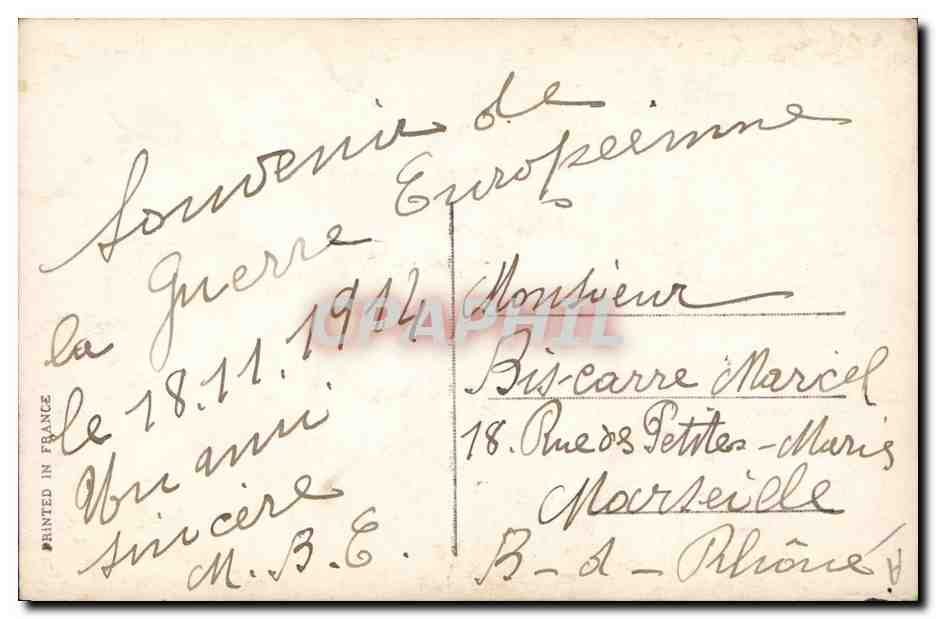 Souvenir de
la Guerre Européenne
le 18.11.1914
Un ami
sincère
M.B.E.
PRINTED IN FRANCE
CPAPHIL
Monsieur
Bis-carre Marcel
18. Rue des Petites-Maries
Marseille
B-d-Rhône